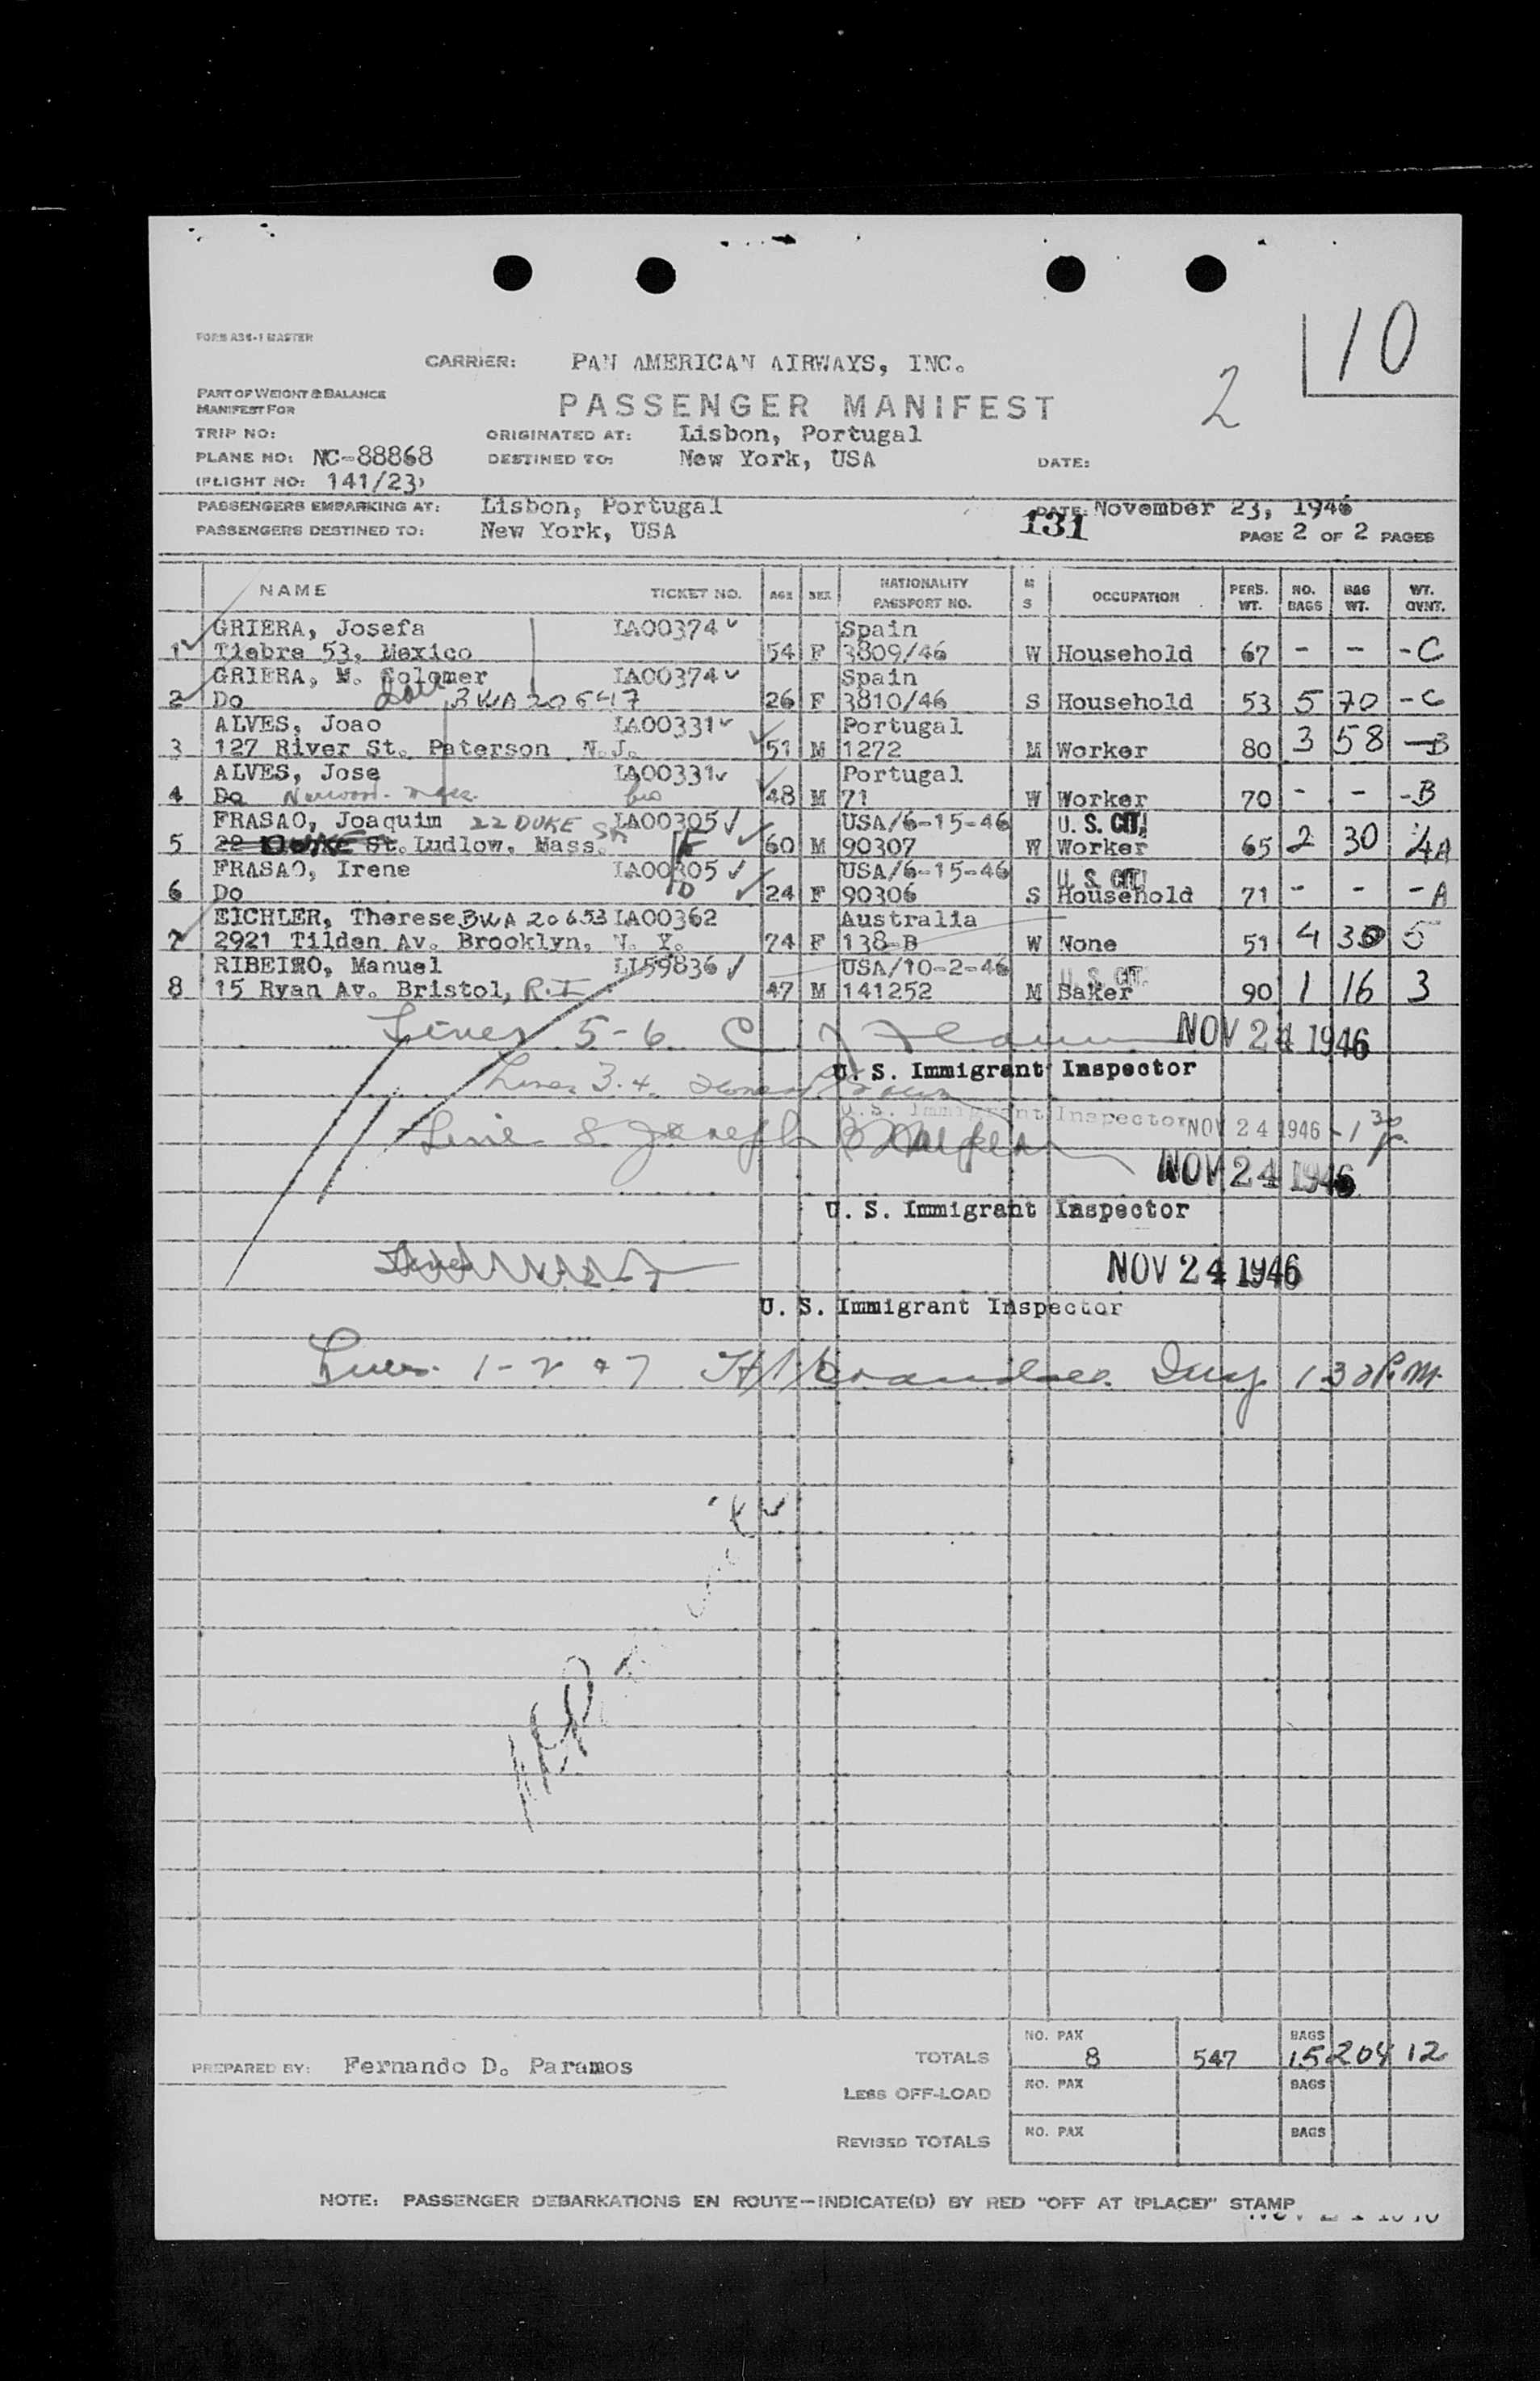 10
2
FORM A36-1 MASTER
CARRIER: PAN AMERICAN AIRWAYS, INC.
PART OF WEIGHT & BALANCE
MANIFEST FOR
PASSENGER MANIFEST
TRIP NO: ORIGINATED AT: Lisbon, Portugal
PLANE NO: NC-88868 DESTINED TO: New York, USA DATE:
(FLIGHT NO: 141/23)
PASSENGERS EMBARKING AT: Lisbon, Portugal DATE: November 23, 1946
131
PASSENGERS DESTINED TO: New York, USA PAGE 2 OF 2 PAGES
NAME TICKET NO. AGE SEX NATIONALITY PASSPORT NO. M S OCCUPATION PERS. WT. NO. BAGS BAG WT. WT. OVNT.
GRIERA, Josefa LA00374 Spain
1 Tiebra 53, Mexico 54 F 3809/46 W Household 67 - - - C
GRIERA, M. Solomer LA00374 Spain
2 Do BWA 20647 26 F 3810/46 S Household 53 5 70 - C
ALVES, Joao LA00331 Portugal
3 127 River St. Paterson N.J. 51 M 1272 M Worker 80 3 58 - B
ALVES, Jose LA00331 Portugal
4 Do Norwood. Mass. 48 M 71 W Worker 70 - - - B
FRASAO, Joaquim 22 DUKE St LA00305 USA/6-15-46 U. S. CIT.
5 22 DUKE St. Ludlow, Mass. 60 M 90307 W Worker 65 2 30 4A
FRASAO, Irene LA00305 USA/6-15-46 U. S. CIT.
6 Do 24 F 90306 S Household 71 - - - A
EICHLER, Therese BWA 20653 LA00362 Australia
7 2921 Tilden Av. Brooklyn, N. Y. 74 F 138-B W None 51 4 30 5
RIBEIRO, Manuel LI59836 USA/10-2-46 U. S. CIT.
8 15 Ryan Av. Bristol, R.I. 47 M 141252 M Baker 90 1 16 3
Lines 5-6 NOV 24 1946
U. S. Immigrant Inspector
Lines 3.4.
U. S. Immigrant Inspector NOV 24 1946 - 1 30 p.
Line 8. Joseph
NOV 24 1946
U. S. Immigrant Inspector
Lines
NOV 24 1946
U. S. Immigrant Inspector
Lines 1-2 & 7 Insp. 1 30 P.M.
PREPARED BY: Fernando D. Paramos
TOTALS NO. PAX 8 547 BAGS 15 204 12
LESS OFF-LOAD NO. PAX BAGS
REVISED TOTALS NO. PAX BAGS
NOTE: PASSENGER DEBARKATIONS EN ROUTE—INDICATE(D) BY RED "OFF AT (PLACE)" STAMP